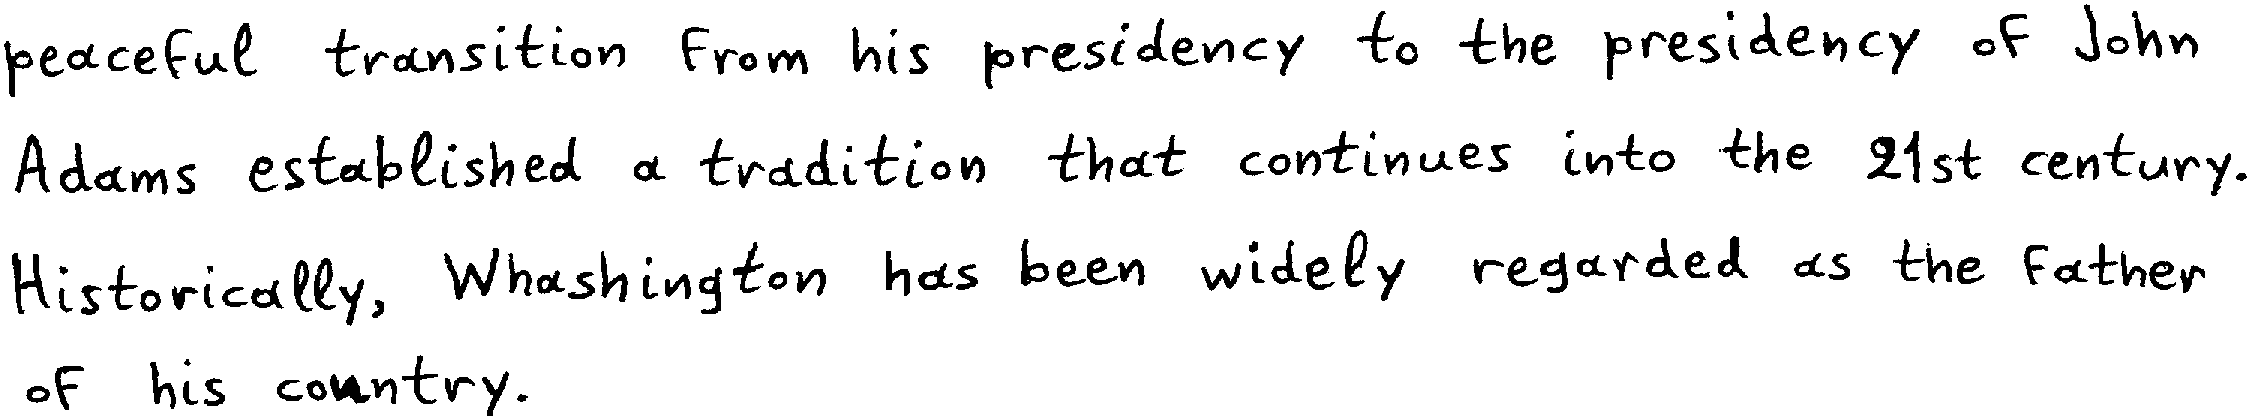 peaceful transition from his presidency to the presidency of John
Adams established a tradition that continues into the 21st century.
Historically, Whashington has been widely regarded as the father
of his country.